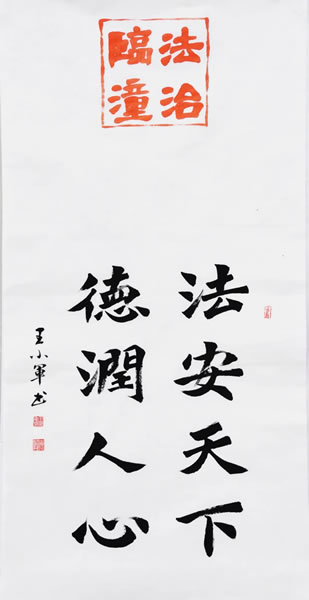 法治
臨潼
法安天下
德潤人心
王小軍书